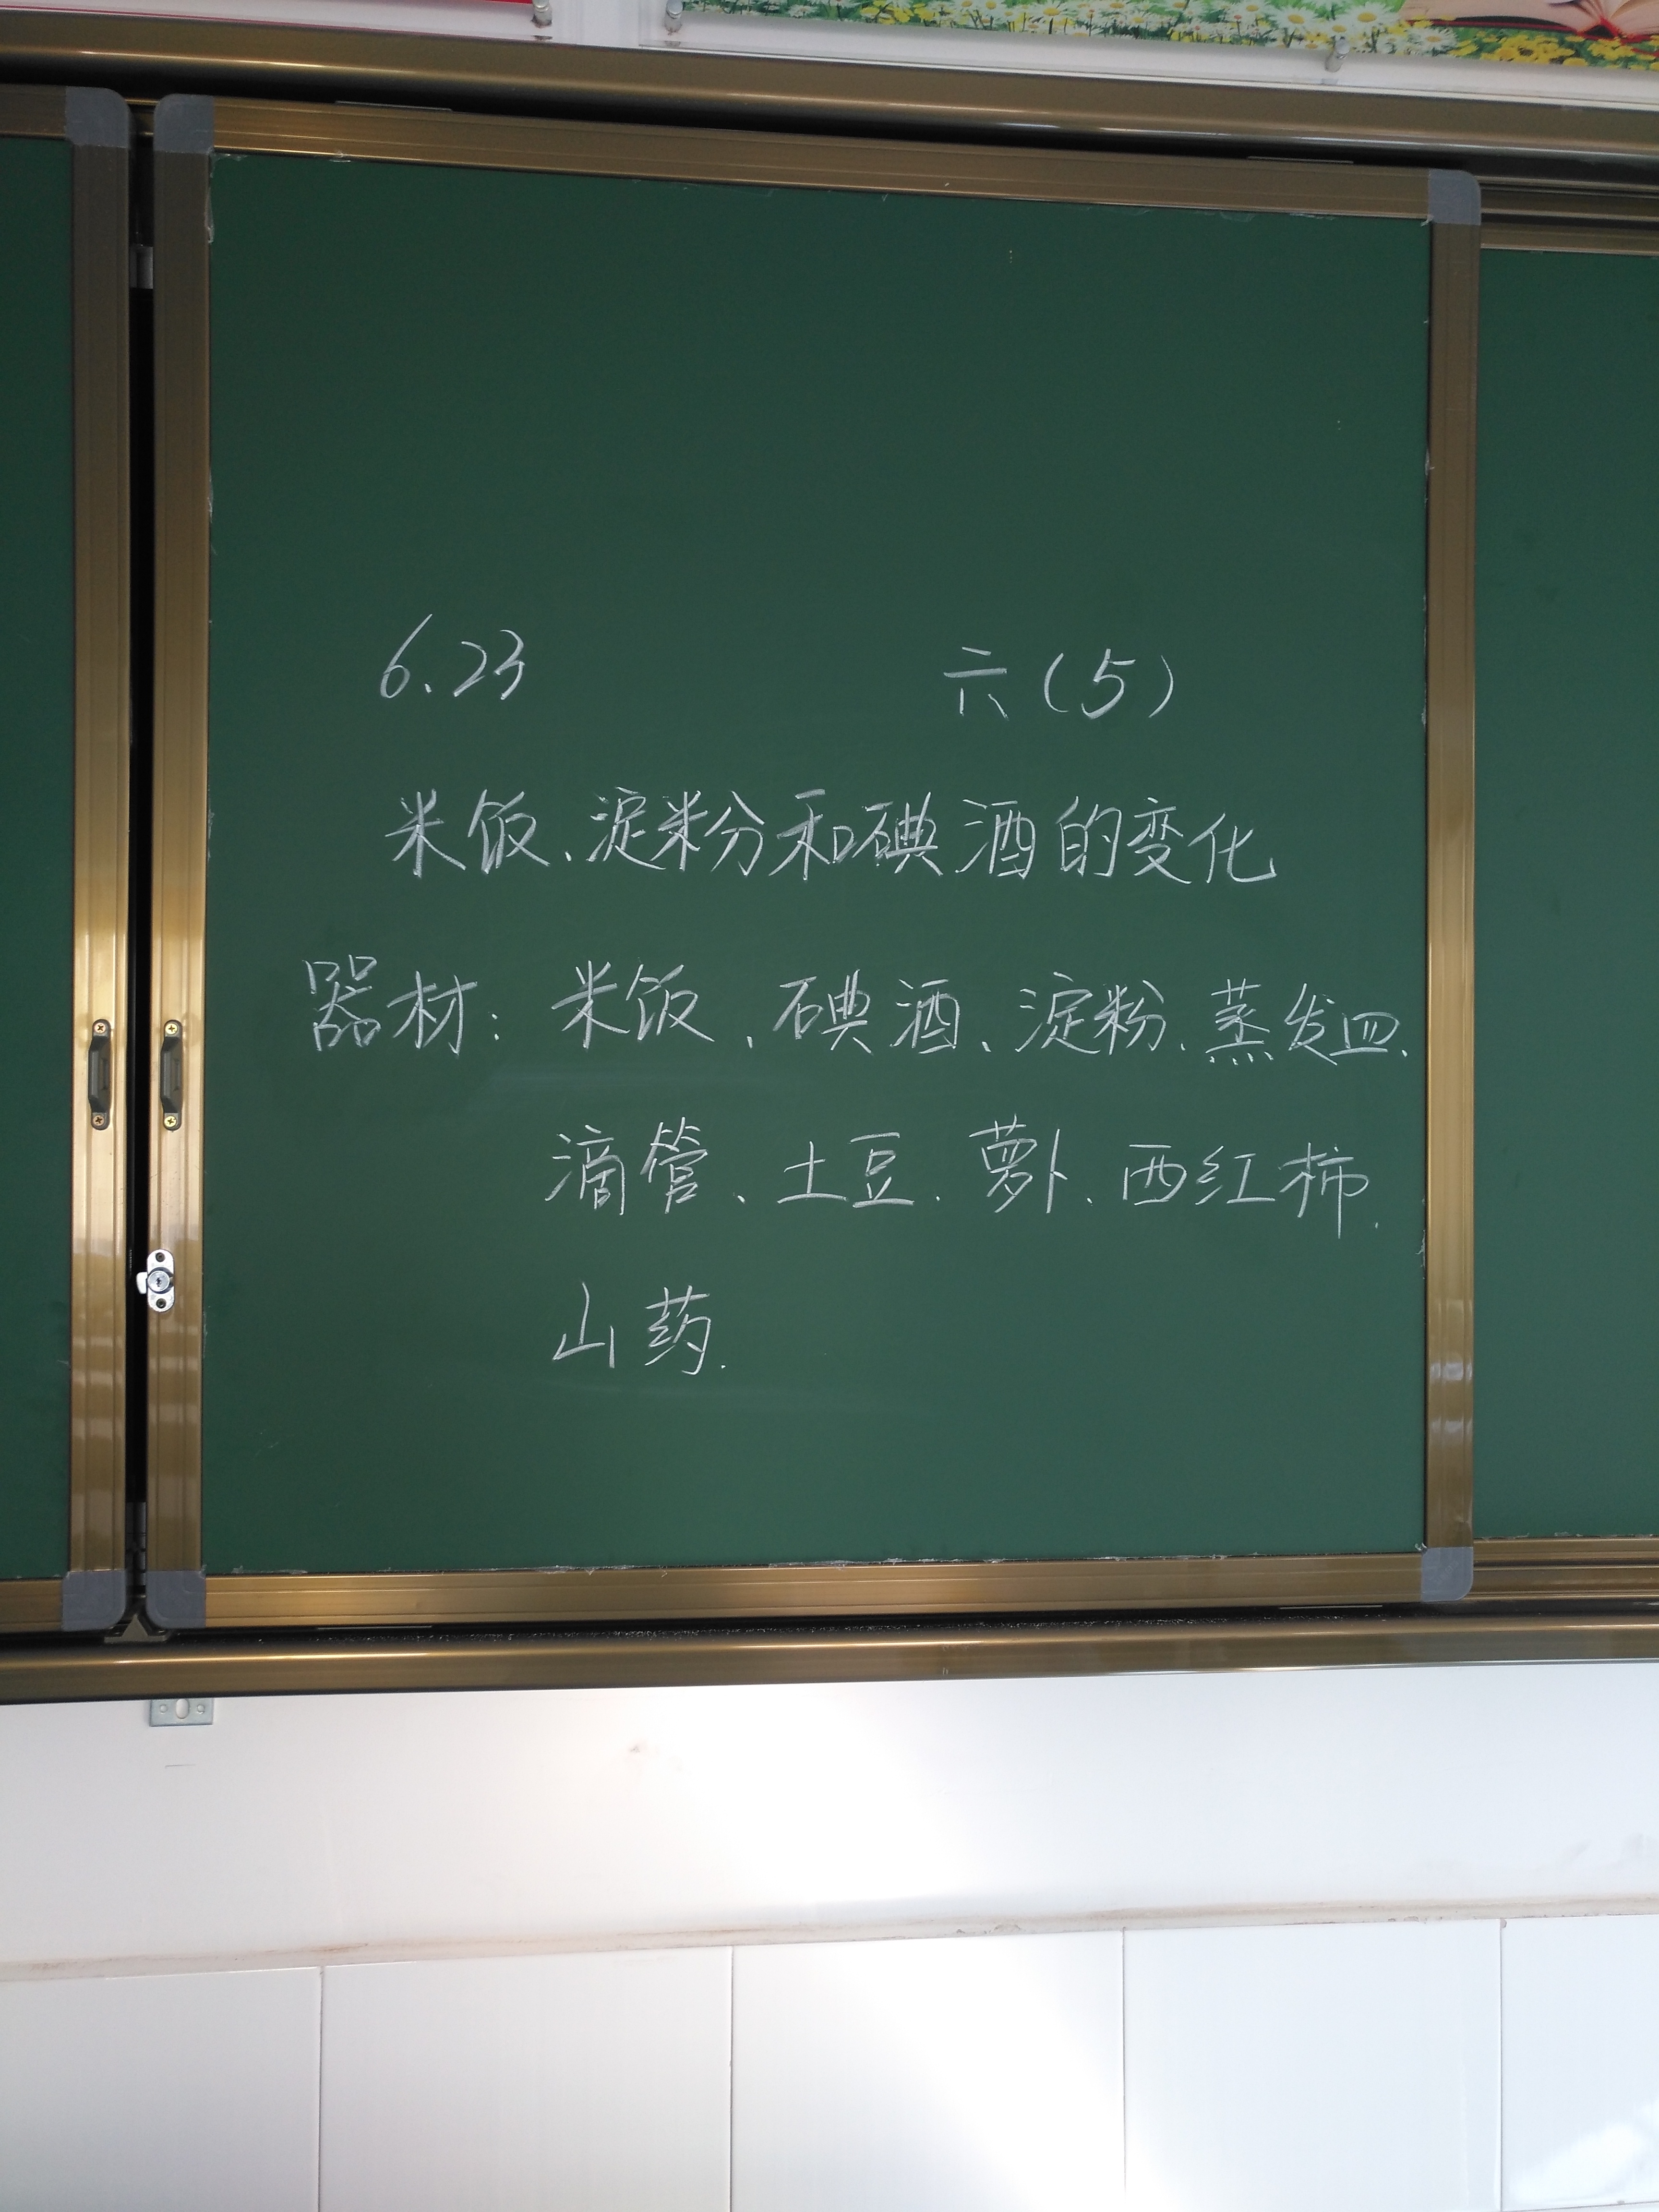 6.23 六(5)
米饭、淀粉分和碘酒的变化
器材：米饭、碘酒、淀粉、蒸发皿、
滴管、土豆、萝卜、西红柿、
山药.